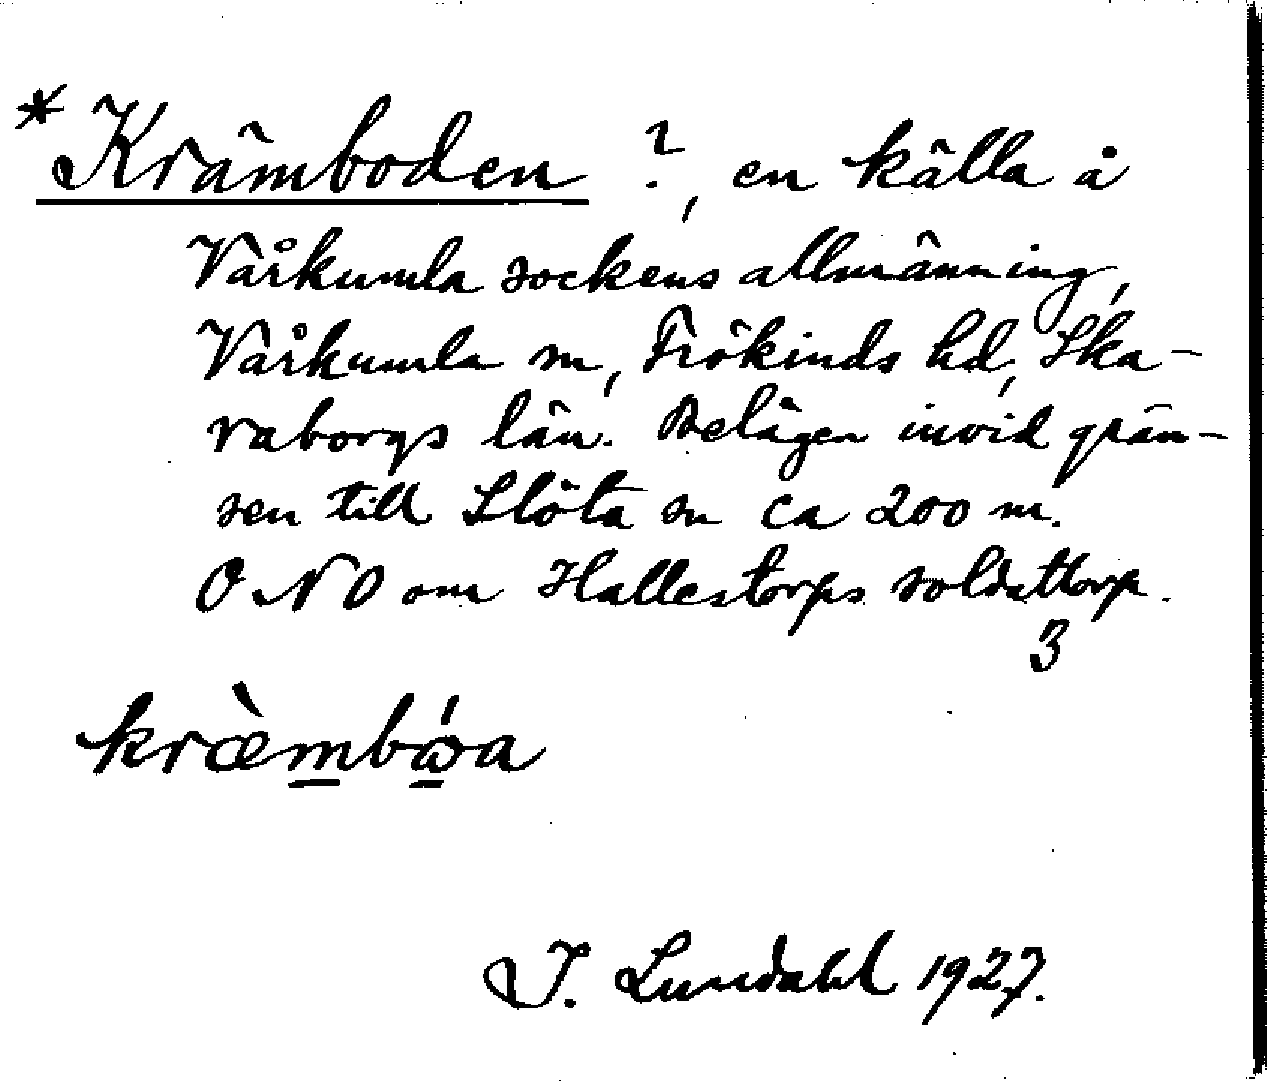 * Krämboden ?, en källa å
Vårkumla sockens allmänning,
Vårkumla sn, Frökinds hd, Ska-
raborgs län. Belägen invid grän-
sen till Slöta sn ca 200 m.
ONO om Hallestorps soldattorp.
3
kræ̀mbó̱a
J. Lundahl 1927.